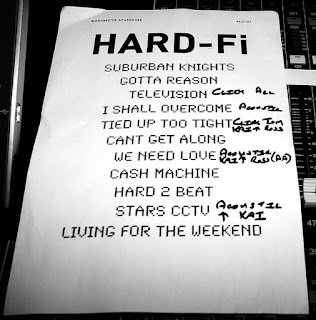 HARD-Fi
SUBURBAN KNIGHTS
GOTTA REASON
TELEVISION CLICK ALL
I SHALL OVERCOME ACOUSTIC
TIED UP TOO TIGHT CLICK TOM
KAI ↑ ROSS
CANT GET ALONG
WE NEED LOVE ACOUSTIC
KAI ↑ ROSS (AA)
CASH MACHINE
HARD 2 BEAT
STARS CCTV ACOUSTIC
↑ KAI
LIVING FOR THE WEEKEND